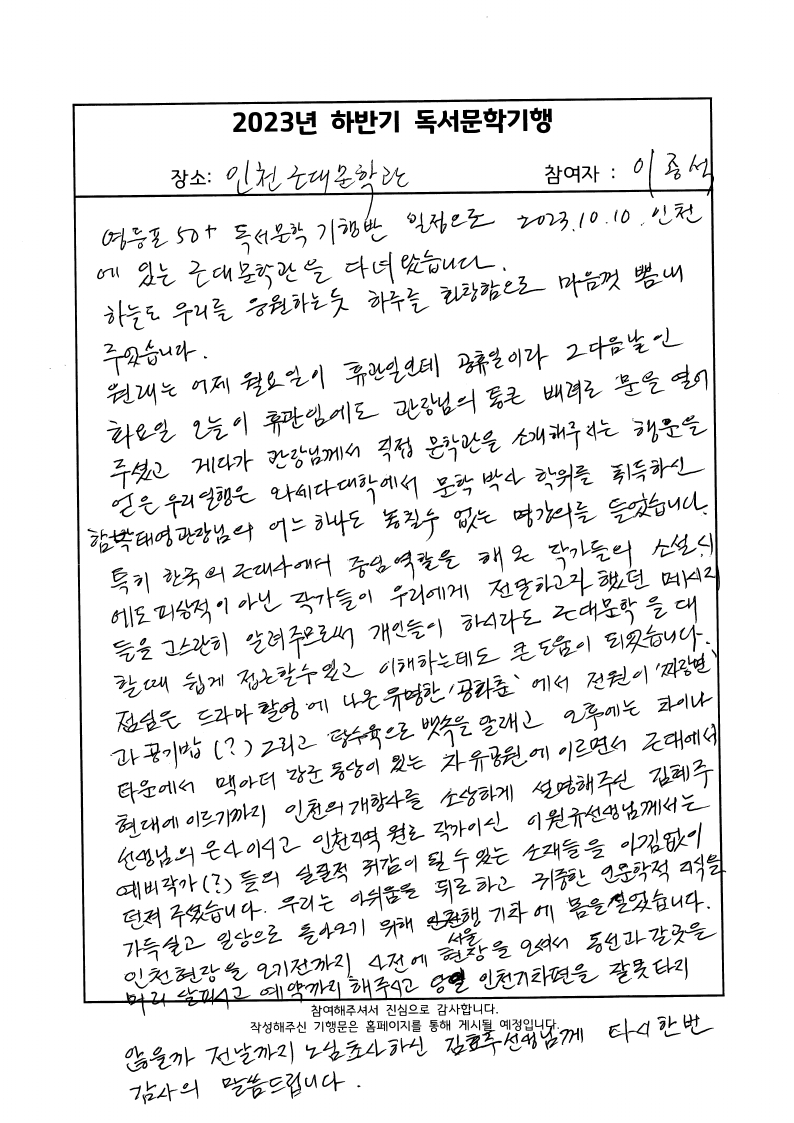 2023년 하반기 독서문학기행
장소: 인천근대문학관 참여자 : 이종석
영등포 50+ 독서문학 기행반 일정으로 2023.10.10. 인천
에 있는 근대문학관을 다녀왔습니다.
하늘도 우리를 응원하는듯 하루를 화창함으로 마음껏 뽐내
주었습니다.
원래는 어제 월요일이 휴관일인데 공휴일이라 그다음날인
화요일 오늘이 휴관임에도 관장님의 통큰 배려로 문을 열어
주셨고 게다가 관장님께서 직접 문학관을 소개해주시는 행운을
얻은 우리일행은 와세다대학에서 문학박사 학위를 취득하신
함태영관장님의 어느하나도 놓칠수 없는 명강의를 들었습니다.
특히 한국의 근대사에서 중임역할을 해온 작가들의 소설,시
에도 피상적이 아닌 작가들이 우리에게 전달하고자 했던 메시지
들을 고스란히 알려주므로써 개인들이 하시라도 근대문학을 대
할때 쉽게 접근할수있고 이해하는데도 큰도움이 되었습니다.
점심은 드라마촬영에 나온 유명한 '공화춘' 에서 전원이 '짜장면'
과 공기밥(?) 그리고 탕수육으로 뱃속을 달래고 오후에는 차이나
타운에서 맥아더 장군 동상이 있는 자유공원에 이르면서 근대에서
현대에 이르기까지 인천의개항사를 소상하게 설명해주신 김혜주
선생님의 은사이시고 인천지역 원로 작가이신 이원규선생님께서는
예비작가(?)들의 실질적 취감이 될수있는 소재들을 아낌없이
던져주셨습니다. 우리는 아쉬움을 뒤로하고 귀중한 인문학적 지식을
가득싣고 일상으로 돌아오기 위해 서울행 기차에 몸을 실었습니다.
인천현장을 오기전까지 사전에 현장을 오셔서 동선과 갈곳을
미리 살피시고 예약까지 해주시고 당일 인천기차편을 잘못타지
참여해주셔서 진심으로 감사합니다.
작성해주신 기행문은 홈페이지를 통해 게시될 예정입니다.
않을까 전날까지 노심초사하신 김효주선생님께 다시한번
감사의 말씀드립니다.